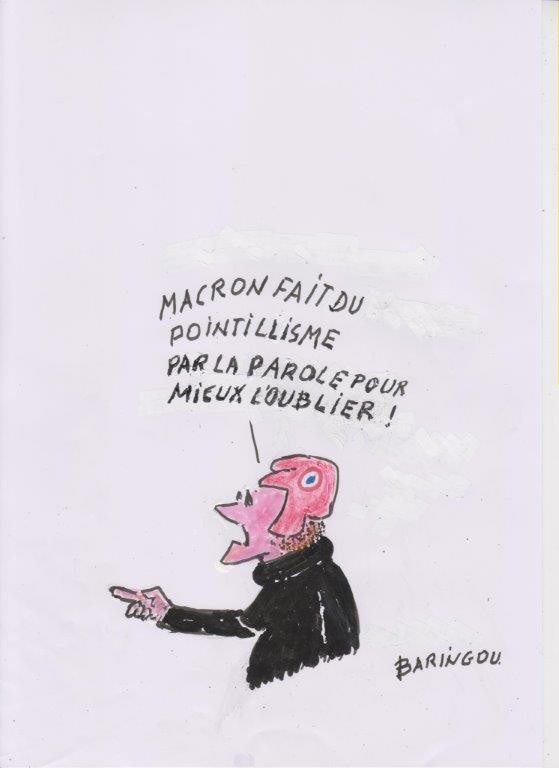 MACRON FAIT DU
POINTILLISME
PAR LA PAROLE POUR
MIEUX L'OUBLIER !
BARINGOU.